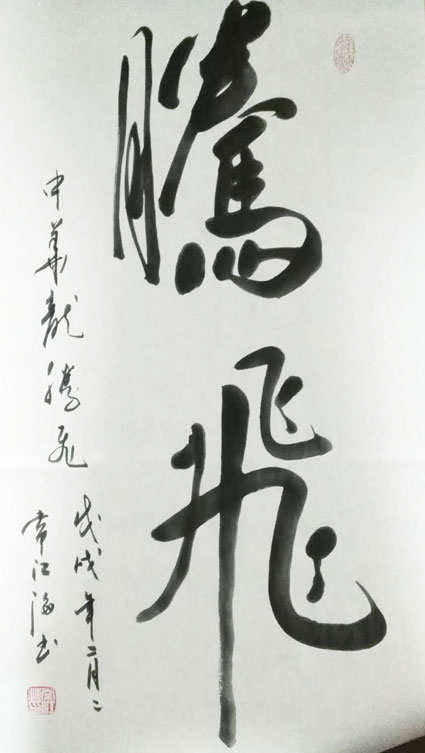 騰飛
中華龍騰飛
戊戌年二月二
常江海書